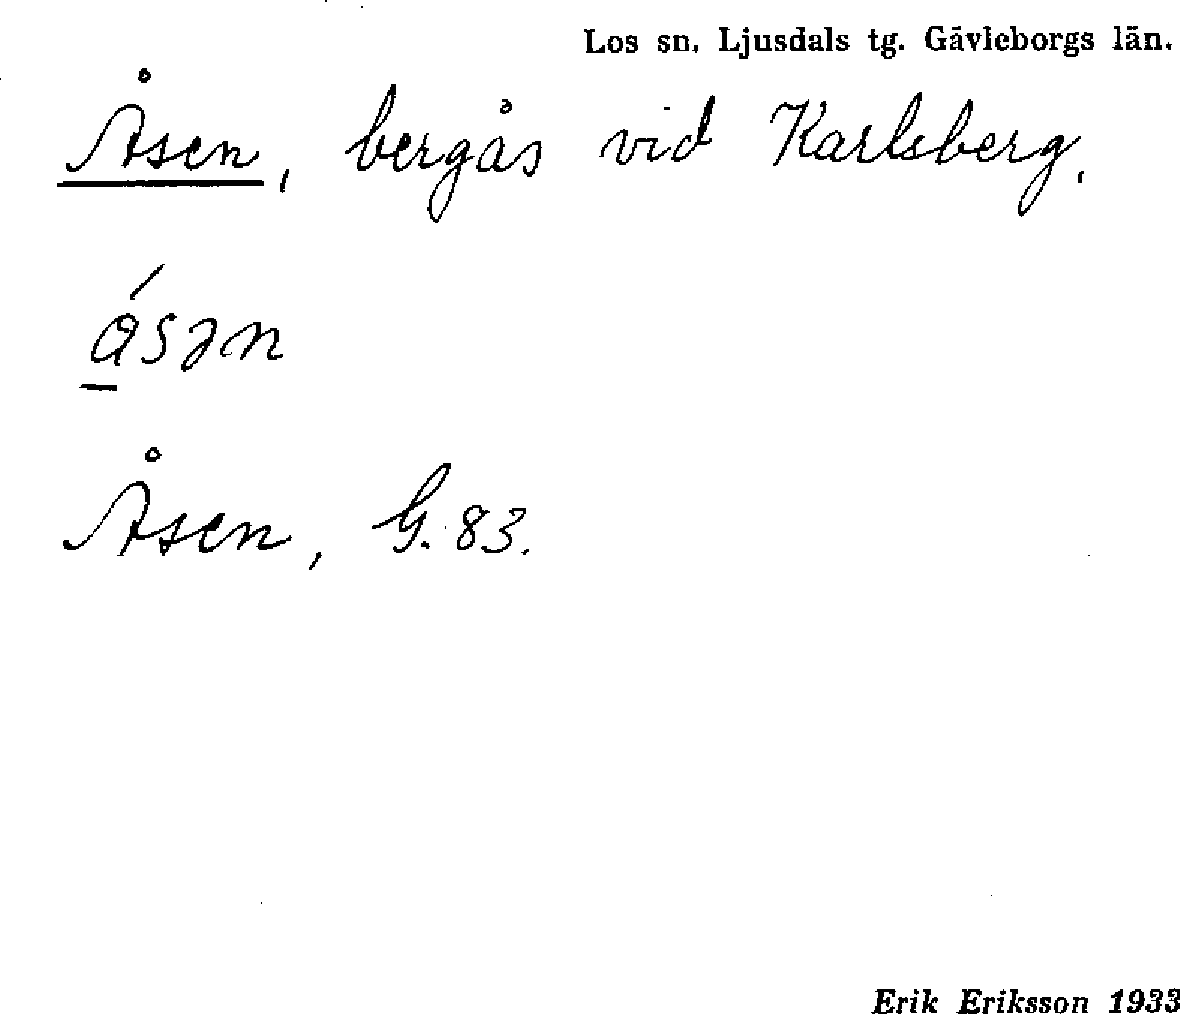 Los sn. Ljusdals tg. Gävleborgs län.
Åsen, bergås vid Karlsberg.
ásən
Åsen, G. 83.
Erik Eriksson 1933